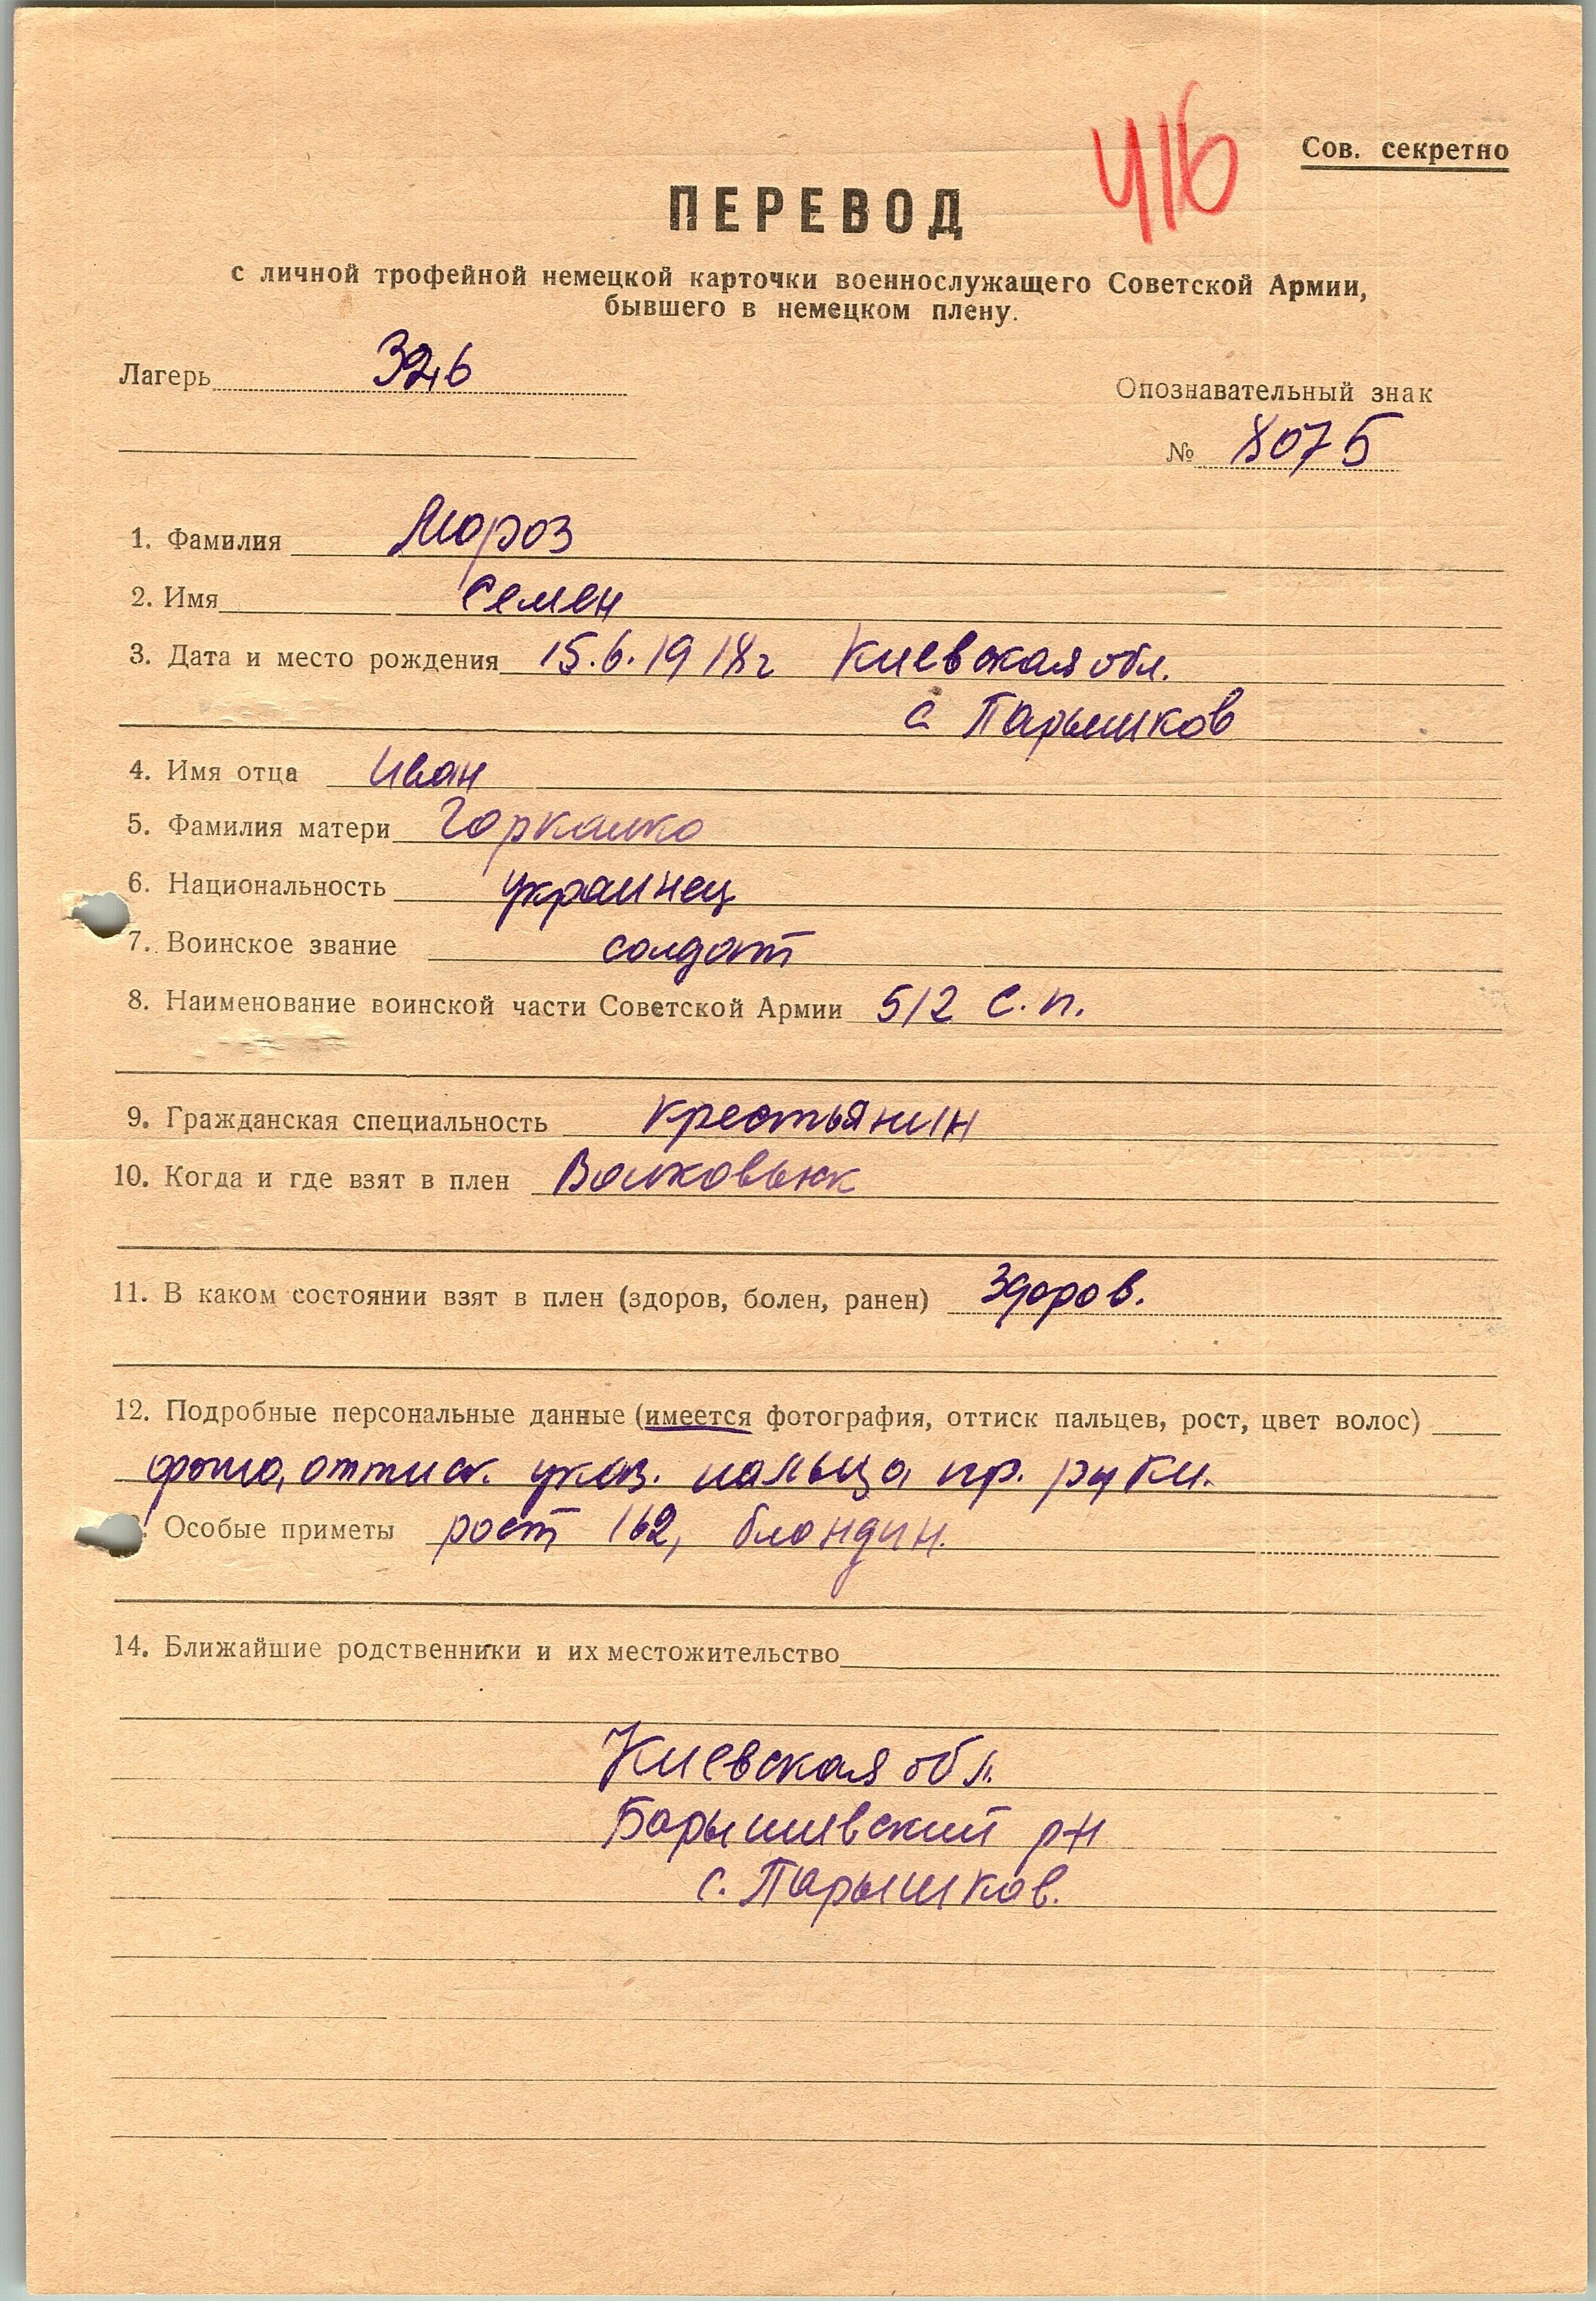 416
Сов. секретно
ПЕРЕВОД
с личной трофейной немецкой карточки военнослужащего Советской Армии,
бывшего в немецком плену.
Лагерь 326
Опознавательный знак
№ 8075
1. Фамилия Мороз
2. Имя Семен
3. Дата и место рождения 15.6.1918г Киевская обл.
с Парышков
4. Имя отца Иван
5. Фамилия матери
6. Национальность украинец
7. Воинское звание солдат
8. Наименование воинской части Советской Армии 512 с.п.
9. Гражданская специальность крестьянин
10. Когда и где взят в плен
11. В каком состоянии взят в плен (здоров, болен, ранен) здоров.
12. Подробные персональные данные (имеется фотография, оттиск пальцев, рост, цвет волос)
фото, оттиск. указ. пальца пр. руки.
Особые приметы рост 162, блондин.
14. Ближайшие родственники и их местожительство
Киевская обл.
Барышевский р-н
с. Парышков.